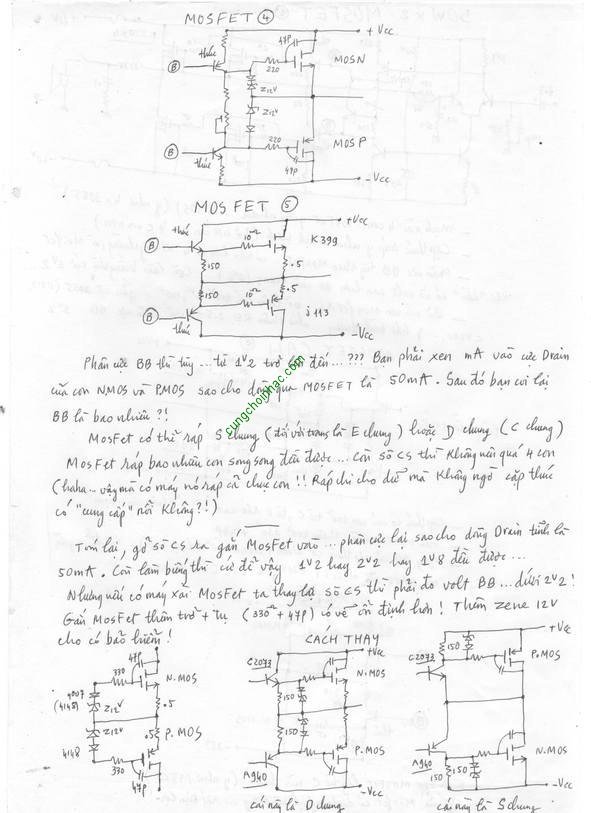 MOSFET ④
+Vcc
47P
thúc
B
220
MOSN
Z12V
Z12V
B
220
MOSP
thúc
47P
-Vcc
MOSFET ⑤
+Vcc
thúc
B
10Ω
K399
150
.5
150
10Ω
.5
B
J113
thúc
-Vcc
Phân cực BB thì tùy... từ 1V2 trở lên đến...??? Bạn phải xen mA vào cực Drain
của con NMOS và PMOS sao cho dòng qua MOSFET là 50mA. Sau đó bạn coi lại
BB là bao nhiêu ?!
MosFet có thể ráp S chung (đối với trans là E chung) hoặc D chung (C chung)
MosFet ráp bao nhiêu con song song đều được... Còn sò CS thì không nên quá 4 con
(haha... vậy mà có máy nó ráp cả chục con !! Ráp chi cho dữ mà không ngờ cặp thúc
có "cung cấp" nổi không ?!)
Tóm lại, gỡ sò CS ra gắn MosFet vào... phân cực lại sao cho dòng Drain tĩnh là
50mA. Còn làm biếng thì cứ để vậy 1V2 hay 2V2 hay 1V8 đều được...
Nhưng nếu có máy xài MosFet ta thay lại sò CS thì phải đo volt BB... dưới 2V2!
Gắn MosFet thêm trở + tụ (330Ω + 47P) có vẻ ổn định hơn! Thêm zene 12V
cho có bảo hiểm!
CÁCH THAY
47P
330
N.MOS
4007
(4148)
Z12V
.5
Z12V
.5
P.MOS
4148
330
47P
+Vcc
C2073
N.MOS
150
150
P.MOS
A940
-Vcc
cái này là D chung
+Vcc
150
C2073
P.MOS
A940
150
150
N.MOS
-Vcc
cái này là S chung
cungchoinhac.com